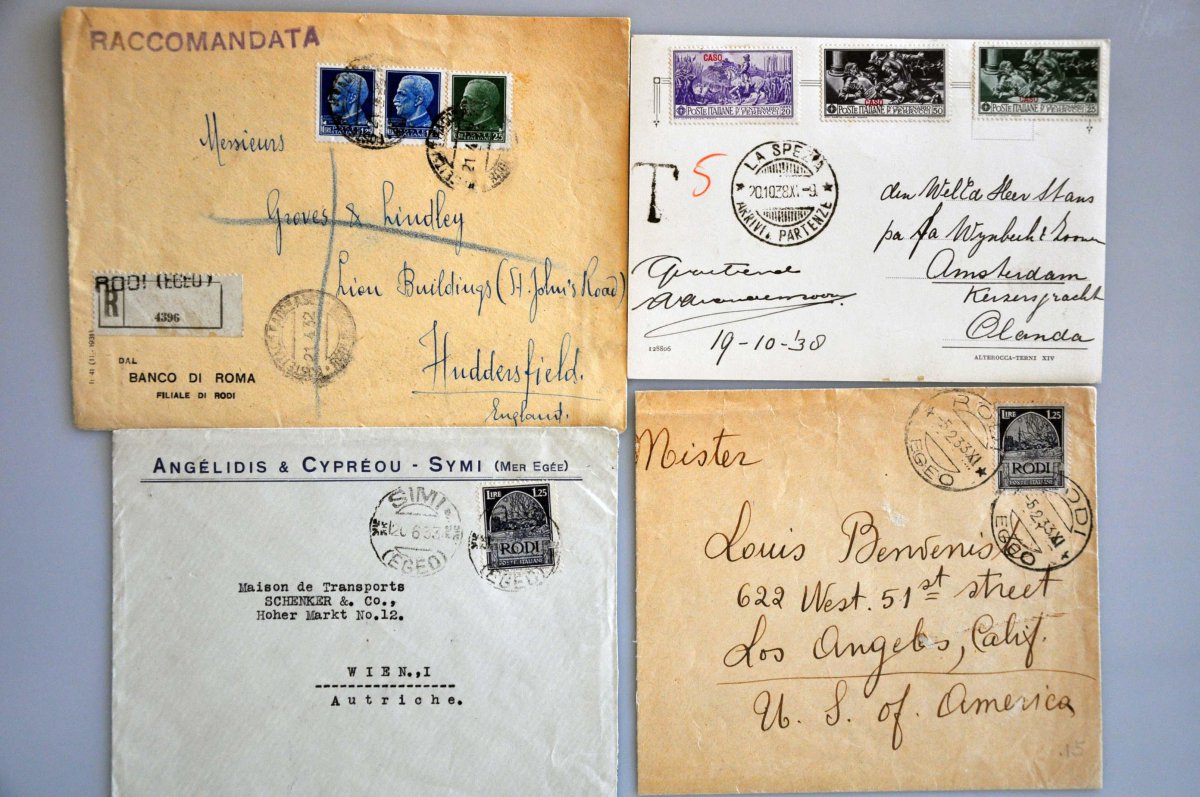 RACCOMANDATA
Messieurs
Groves & Lindley
Lion Buildings (St. John's Road)
Huddersfield.
England.
RODI (EGEO)
R
4396
21.4.32
DAL
BANCO DI ROMA
FILIALE DI RODI
CASO
POSTE ITALIANE
20
CASO
POSTE ITALIANE
50
CASO
POSTE ITALIANE
25
T
5
LA SPEZIA
20.10.38.XI-9
ARRIVI e PARTENZE
den Wel.Ed Heer Stans
pa fa
Amsterdam
Keizersgracht
Olanda
19-10-'38
128806
ALTEROCCA-TERNI XIV
ANGÉLIDIS & CYPRÉOU - SYMI (MER EGÉE)
SIMI
20.6.33
(EGEO)
LIRE 1.25
RODI
POSTE ITALIANE
(EGEO)
Maison de Transports
SCHENKER &. Co.,
Hoher Markt No.12.
WIEN.,I
Autriche.
Mister
RODI
-5.2.33.XI
EGEO
LIRE 1.25
RODI
POSTE ITALIANE
RODI
-5.2.33.XI
EGEO
Louis Benvenis
622 West. 51st street
Los Angeles, Calif.
U. S. of. America
.15